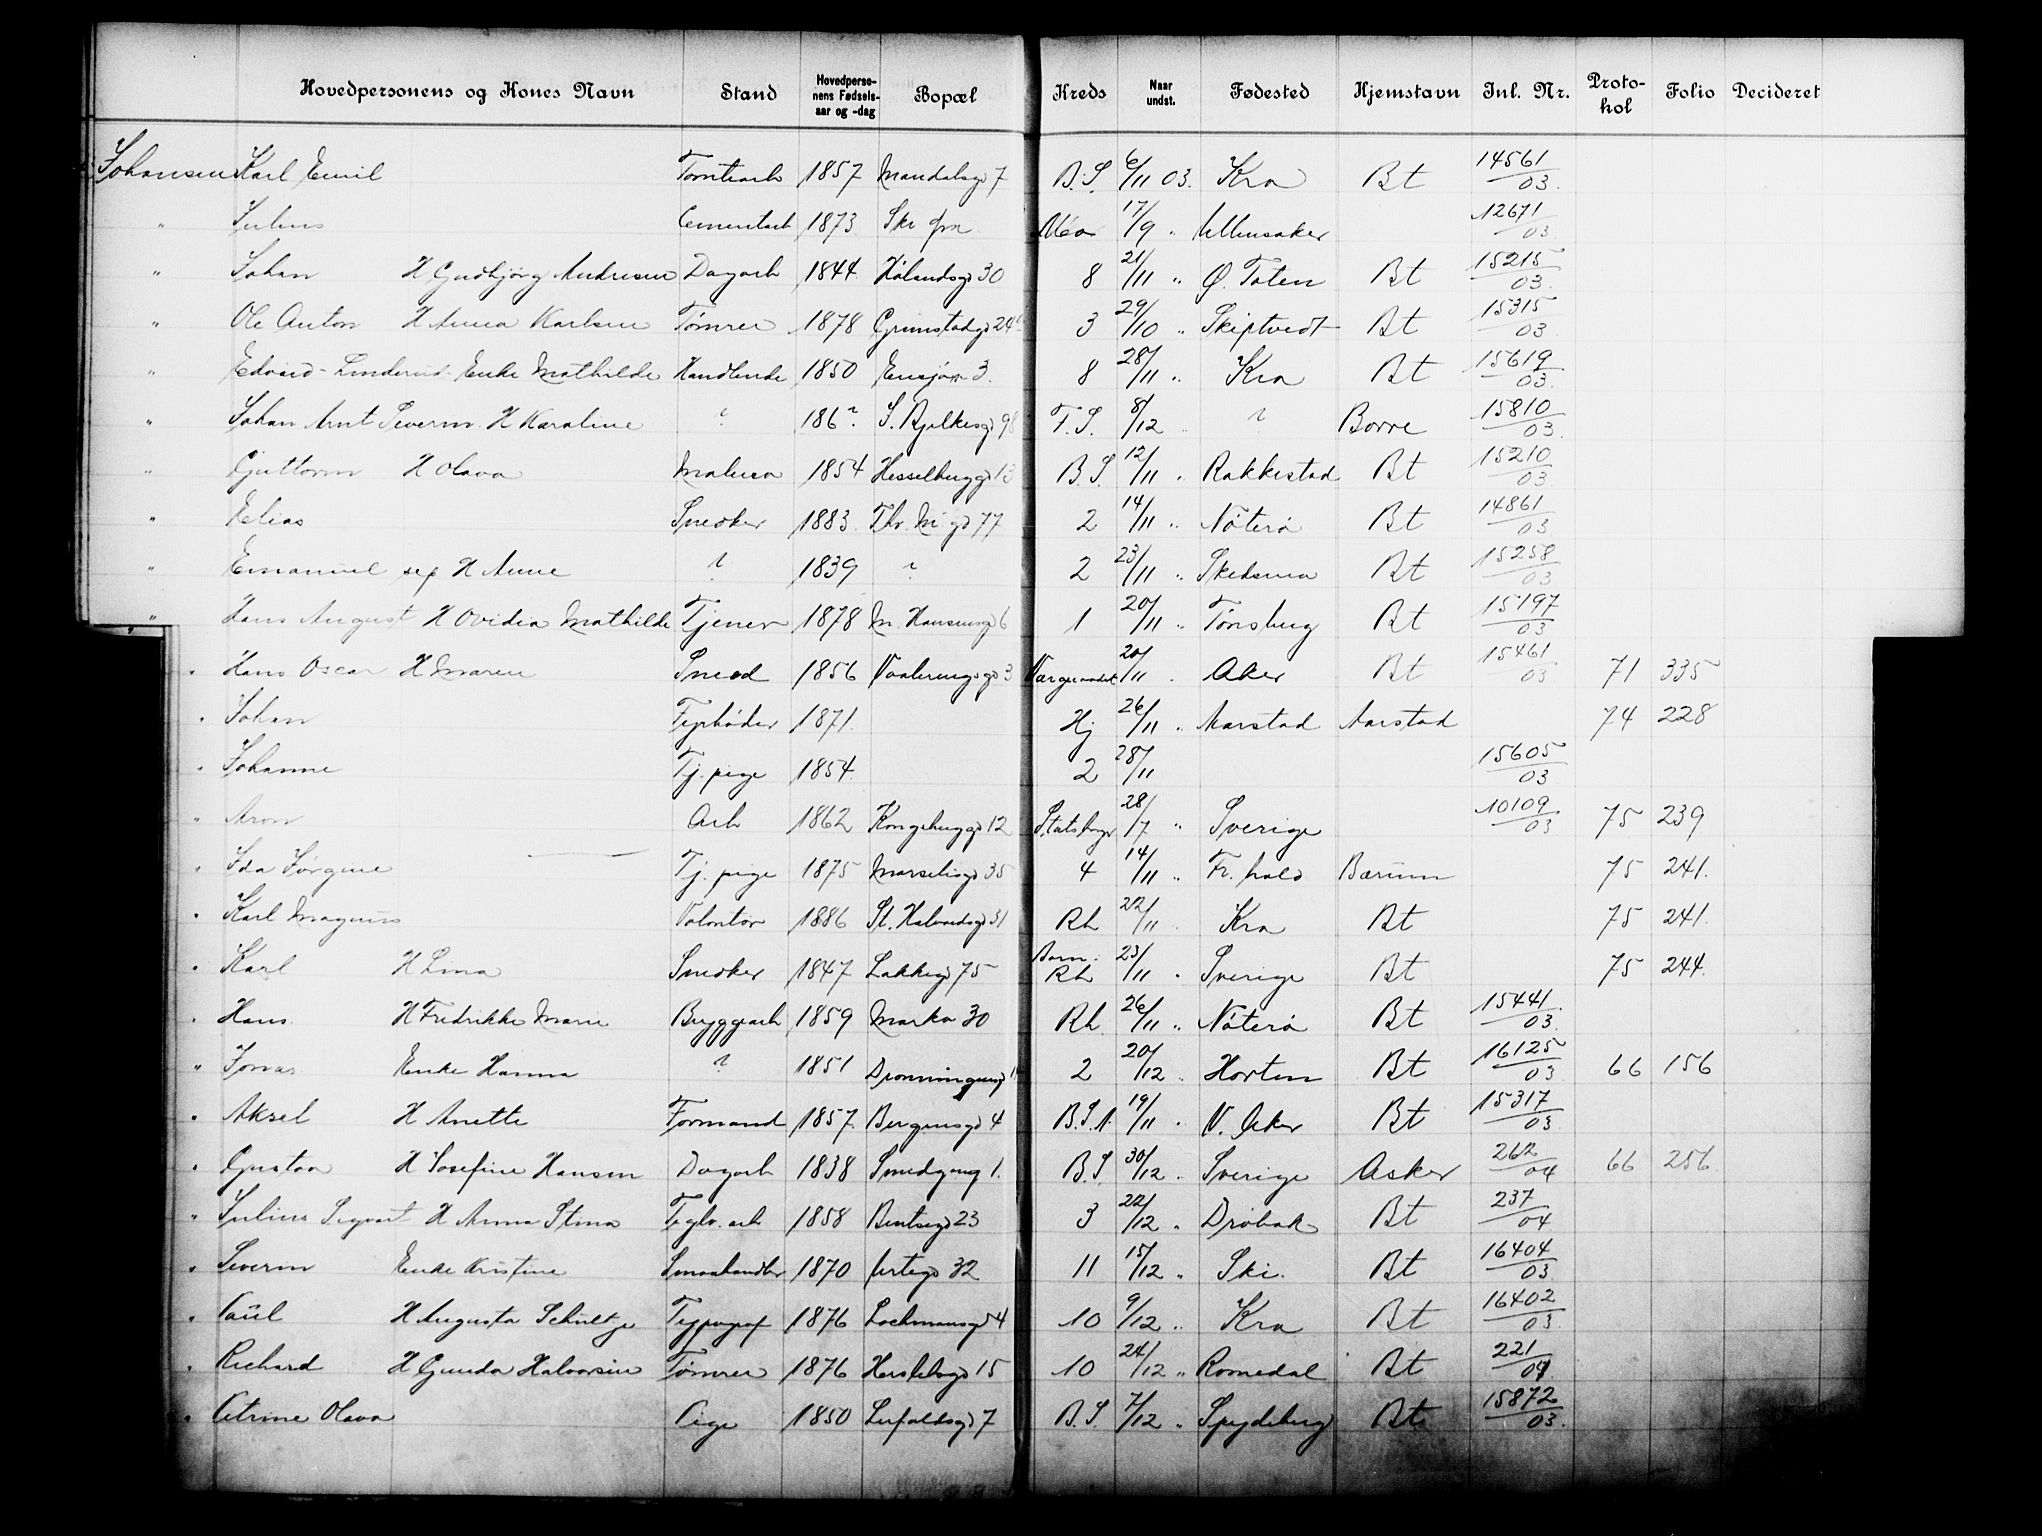 Hovedpersonens og Kones Navn Stand Hovedpersonens Fødselsaar og -dag Bopæl Kreds Naar undst. Fødested Hjemstavn Inl. Nr. Protokol Folio Decideret
Johansen Karl Emil Tomtearb 1857 Mandalsgd 7 B.S. 6/11 03. Kra Bt 14561/03.
" Julius Cementarb 1873 Ski 17/9 " Ullensaker 12671/03
" Johan H Gudbjørg Andresen Dagarb 1844 Hølandsgd 30 8 21/11 " Ø. Toten Bt 15215/03.
" Ole Anton H Anna Karlsen Tømrer 1878 Grimstadgd 24 3 29/10 " Skiptvedt Bt 15315/03.
" Edvard Linderud Enke Mathilde Handlende 1850 Ensjøvn 3. 8 28/11 " Kra Bt 15619/03.
" Johan Arnt Severin H Karoline ? 186? S. Bjelkesgd 98 F.S. 8/12 " ? Borre 15810/03.
" Guttorm H Olava Malersv 1854 Hesselberggd 13 B.S. 12/11 " Rakkestad Bt 15210/03
" Elias Snedker 1883. Thv. M gd 77 2 14/11 " Nøterø Bt 14861/03
" Emanuel sep H Anne ? 1839 ? 2 23/11 " Skedsmo Bt 15258/03
" Hans August H Ovidia Mathilde Tjener 1878 M. Hansensgd 6 1 20/11 " Tønsberg Bt 15197/03
" Hans Oscar H Maren Smed 1856 Vaalerengsgd 3 Værgeraadet 20/11 " Aker Bt 15461/03 71 335
" Johan Fyrbøder 1871. Hj 26/11 " Aarstad Aarstad 74 228
" Johanne Tj. pige 1854 2 28/11 15605/03
" Aron Arb 1862 Kongebyggd 12 Statsborger 28/7 " Sverige 10109/03 75 239
" Ida Jørgine Tj. pige 1875 Marseliisgd 35 4 14/11 " Fr. hald Bærum 75 241.
" Karl Magnus Volontør 1886 St. Halvardsgd 31 Rh 22/11 " Kra Bt 75 241.
" Karl H Lina Snedker 1847 Lakkegd 75 Barn. Rh 23/11 " Sverige Bt 75 244.
" Hans H Fredrikke Marie Bryggearb 1859 Markv 30 Rh. 26/11 " Nøterø Bt 15441/03.
" Jonas Enke Hanna ? 1851 Dronningensgd 2 20/12 " Horten Bt 16125/03 66 156
" Aksel H Anette Formand 1857. Bergensgd 4 B.S.A. 19/11 " V. Aker Bt 15317/03.
" Gustav H Josefine Hansen Dagarb 1838 Smedgang 1. B.S 30/12 " Sverige Asker 262/04 66 256
" Julius Sigvart H Anna Stina Teglv. arb 1858 Bentsegd 23 3 22/12 " Drøbak Bt 237/04
" Severin Enke Kristine Smaahandler 1870 32 11 15/12 " Ski. Bt 16404/03.
" Paul H Augusta Schultze Typograf 1876 Lochmansgd 4 10 9/12 " Kra Bt 16402/03.
" Richard H Gunda Halvorsen Tømrer 1876 Herslebsgd 15 10 24/12 " Romedal Bt 221/04
" Petrine Olava Pige 1850 Leufaldsgd 7 B.S. 7/12 " Spydeberg Bt 15872/03.